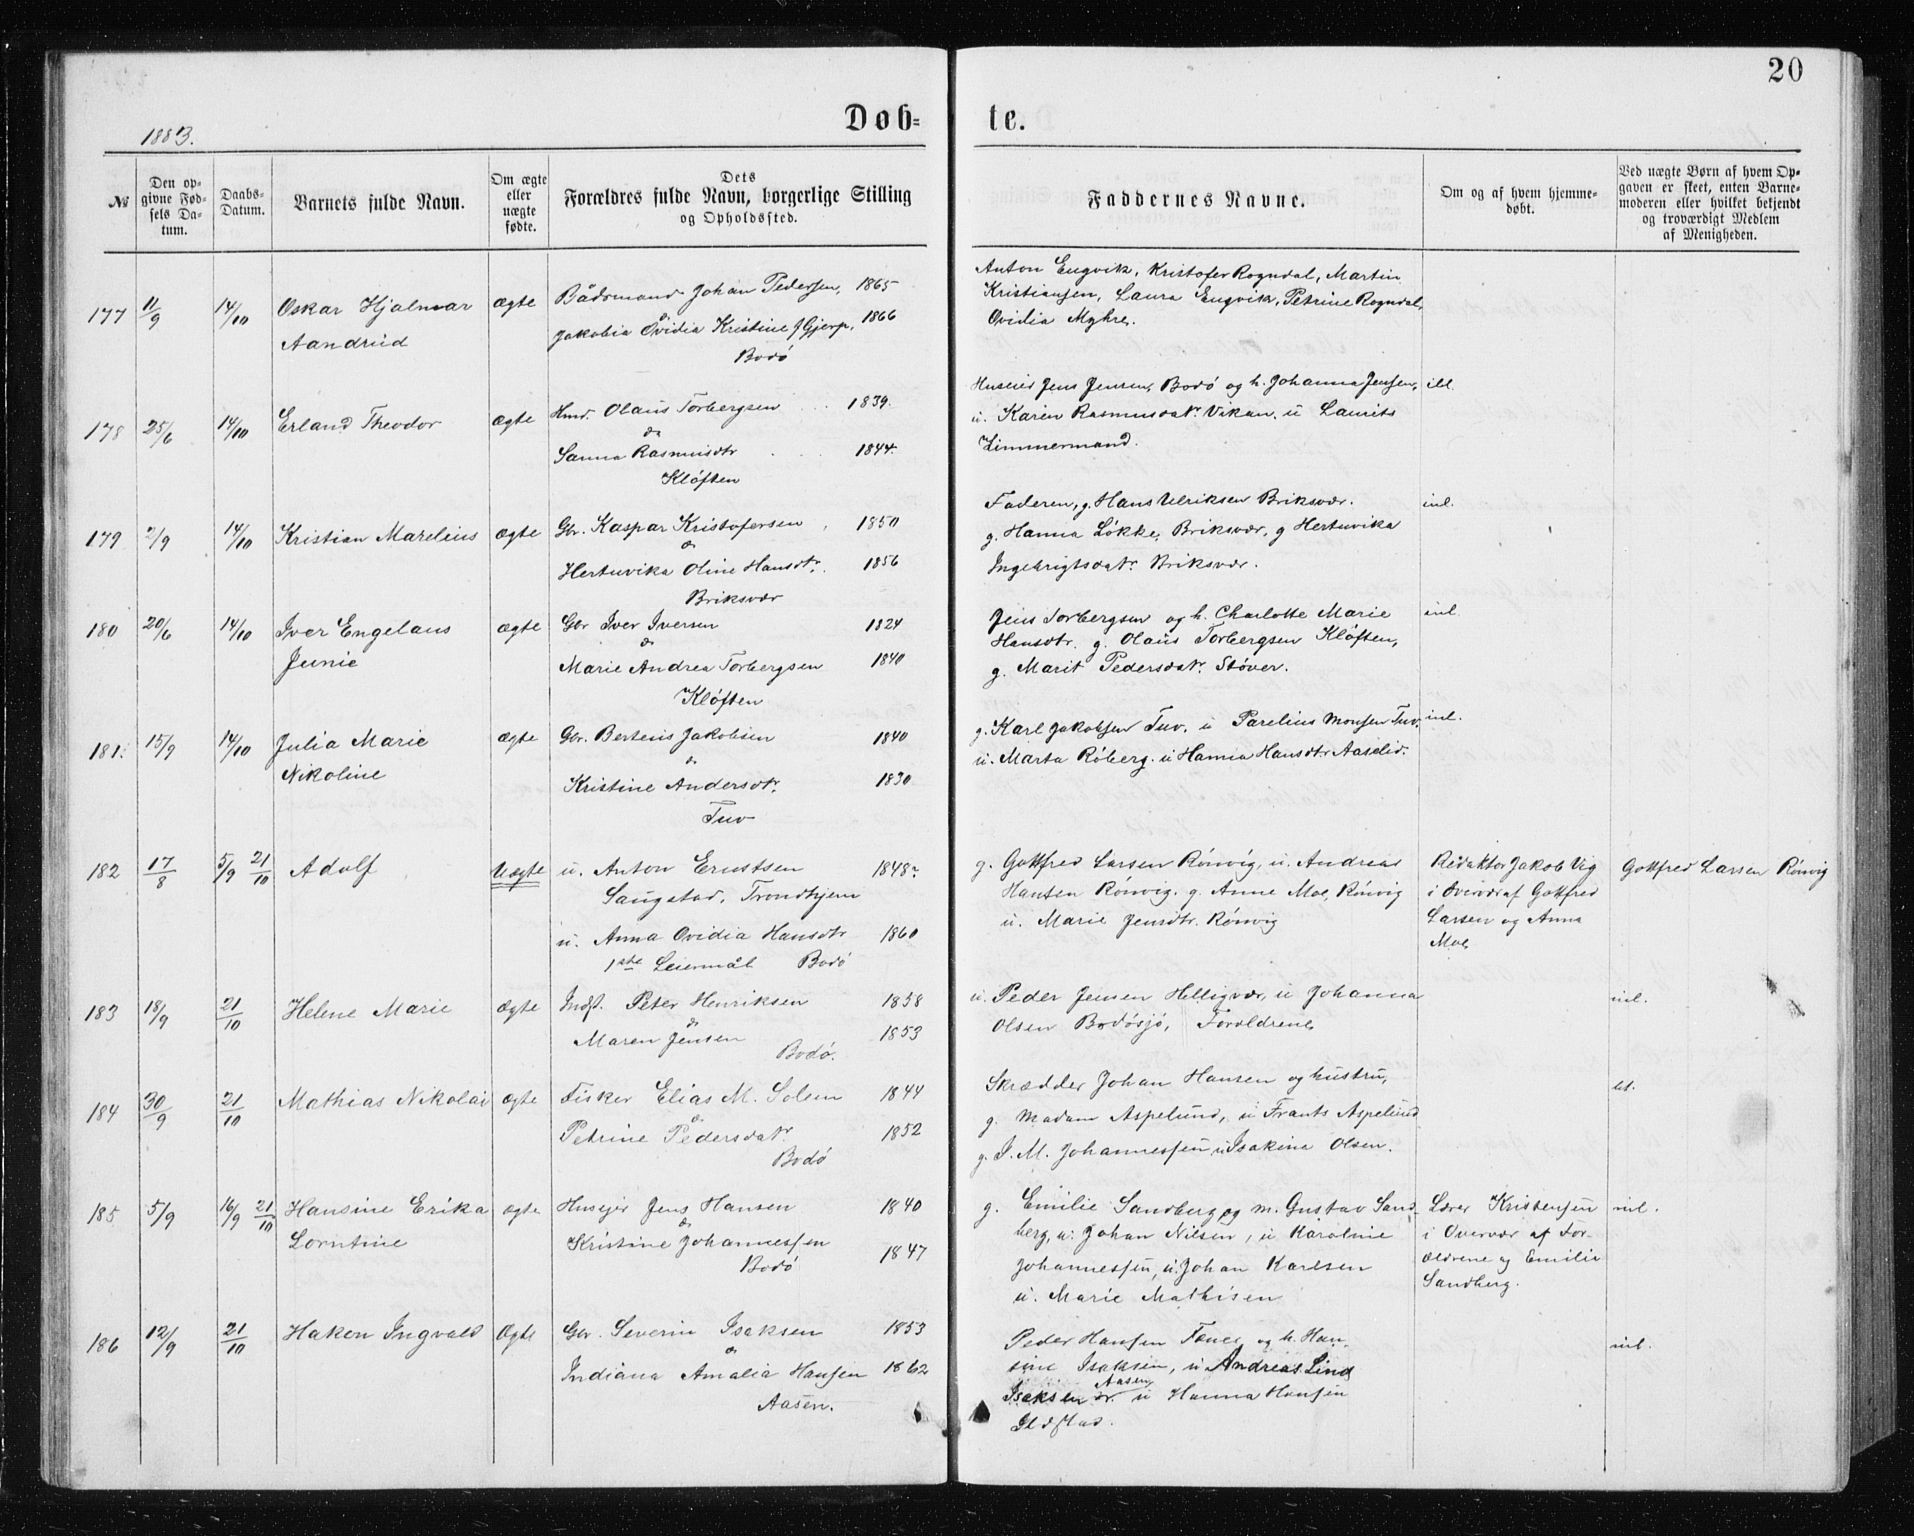 20
Døb=
te.
1883.
№
Den op=
givne Fød=
sels Da=
tum.
Daabs=
Datum.
Barnets fulde Navn.
Om ægte
eller
uægte
fødte.
Dets
Forældres fulde Navn, borgerlige Stilling
og Opholdssted.
Faddernes Navne.
Om og af hvem hjemme=
døbt.
Ved uægte Børn af hvem Op=
gaven er skeet, enten Barne=
moderen eller hvilket bekjendt
og troværdigt Medlem
af Menigheden.
177 11/9 14/10 Oskar Hjalmar ægte Bådsmand Johan Pedersen, 1865
Aandrud
Jakobia Ovidia Kristine Gjerp, 1866
Bodø
Anton Engvik, Kristofer Rogndal, Martin
Kristiansen, Laura Engvik, Petrine Rogndal,
Ovidia Myhre.
178 25/6 14/10 Erland Theodor ægte Hmd. Olaus Torbergsen 1839.
Sanna Rasmusdtr 1844.
Kløften
Huseier Jens Jensen, Bodø og h. Johanna Jensen,
u. Karen Rasmusdatr. Vikan, u Laurits
Zimmermand.
179 2/9 14/10 Kristian Marelius ægte Gbr. Kaspar Kristofersen 1850
&
Hertuvika Oline Hansdtr. 1856
Briksvær
Faderen, g. Hans Ulriksen Briksvær. inl.
g. Hanna Løkke, Briksvær, g Hertuvika
Ingebrigtsdatr. Briksvær.
180 20/6 14/10 Iver Engelaus ægte Gbr Iver Iversen 1824
Junie
&
Marie Andrea Torbergsen 1840
Kløften
Jens Torbergsen og h. Charlotte Marie inl
Hansdtr. g. Olaus Torbergsen Kløften,
g. Marit Pedersdatr. Støver.
181. 15/9 14/10 Julia Marie ægte Gbr. Berteus Jakobsen 1840
Nikoline
&
Kristine Andersdtr. 1830
Tuv
g. Karl Jakobsen Tuv. u Parelius Monsen Tuv, inl.
u. Marta Røberg. u Hanna Hansdtr Aaselid.
182 17/8 5/9 21/10 Adolf Uægte u. Anton Erntsen 1848.
Saugstad, Trondhjem
u. Anna Ovidia Hansdtr 1860
1ste Leiermål Bodø
g. Gottfred Larsen Rønvig, u. Andreas
Hansen Rønvig. g. Anne Moe, Rønvig
u. Marie Jensdtr. Rønvig
Redaktør Jakob Vig
i Overvær af Gottfred
Larsen og Anna
Moe
Gottfred Larsen Rønvig
183 18/9 21/10 Helene Marie ægte Indst. Peter Henriksen 1858
&
Maren Jensen 1853
Bodø.
u. Peder Jensen Helligvær, u Johanna inl.
Olsen Bodøsjø, Forældrene
184 30/9 21/10 Mathias Nikolai ægte Fisker Elias M. Solem 1844
&
Petrine Pedersdatr. 1852
Bodø
Skrædder Johan Hansen og hustru,
g. Madam Aspelund, u Frants Aspelund
g. I. M. Johannessen u Isakine Olsen.
185 5/9 16/9 21/10 Hansine Erika ægte Husejer Jens Hansen 1840
Lorntine
&
Kristine Johannessen 1847
Bodø
g. Emilie Sandberg og m. Gustav Sand-
berg, u. Johan Nilsen, u Karoline
Johannessen, u. Johan Karlsen
u. Marie Mathisen
Lærer Kristensen inl.
i Overvær af For-
ældrene og Emilie
Sandberg.
186 12/9 21/10 Hakon Ingvald Ægte Gbr. Severin Isaksen 1853
&
Indiana Amalia Hansen 1862
Aasen.
Peder Hansen og h. Han- inl.
sine Isaksen, u Andreas Lind
Isaksen Aasen u Hanna Hansen